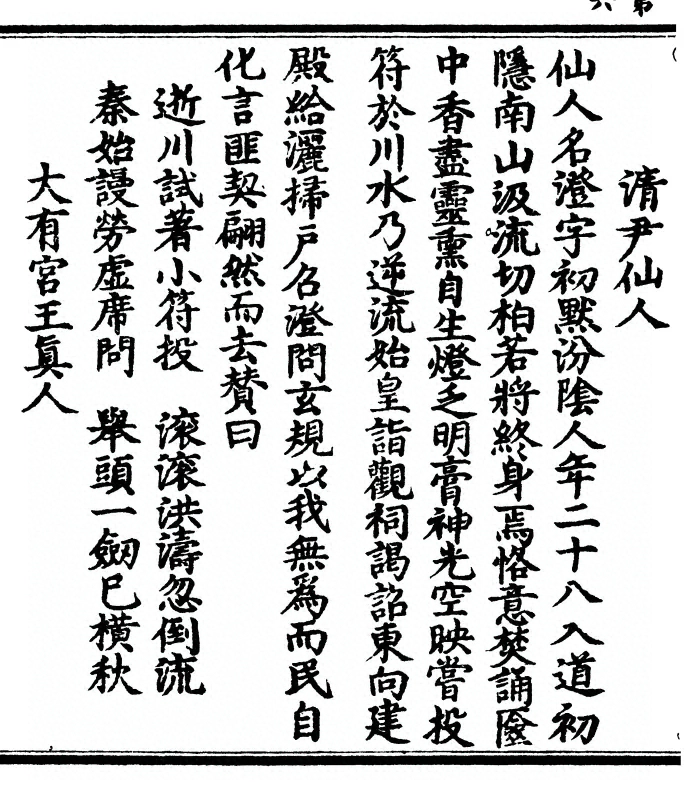 清尹仙人
仙人名澄字初默汾陰人年二十八入道初
隱南山汲流切柏若將終身焉恪意焚誦匳
中香盡靈熏自生燈乏明膏神光空映嘗投
符於川水乃逆流始皇詣觀祠謁詔東向建
殿給灑掃戶召澄問玄規以我無為而民自
化言匪契翩然而去贊曰
逝川試著小符投　滾滾洪濤忽倒流
秦始謾勞虛席問　舉頭一劔已橫秋
大有宮王眞人